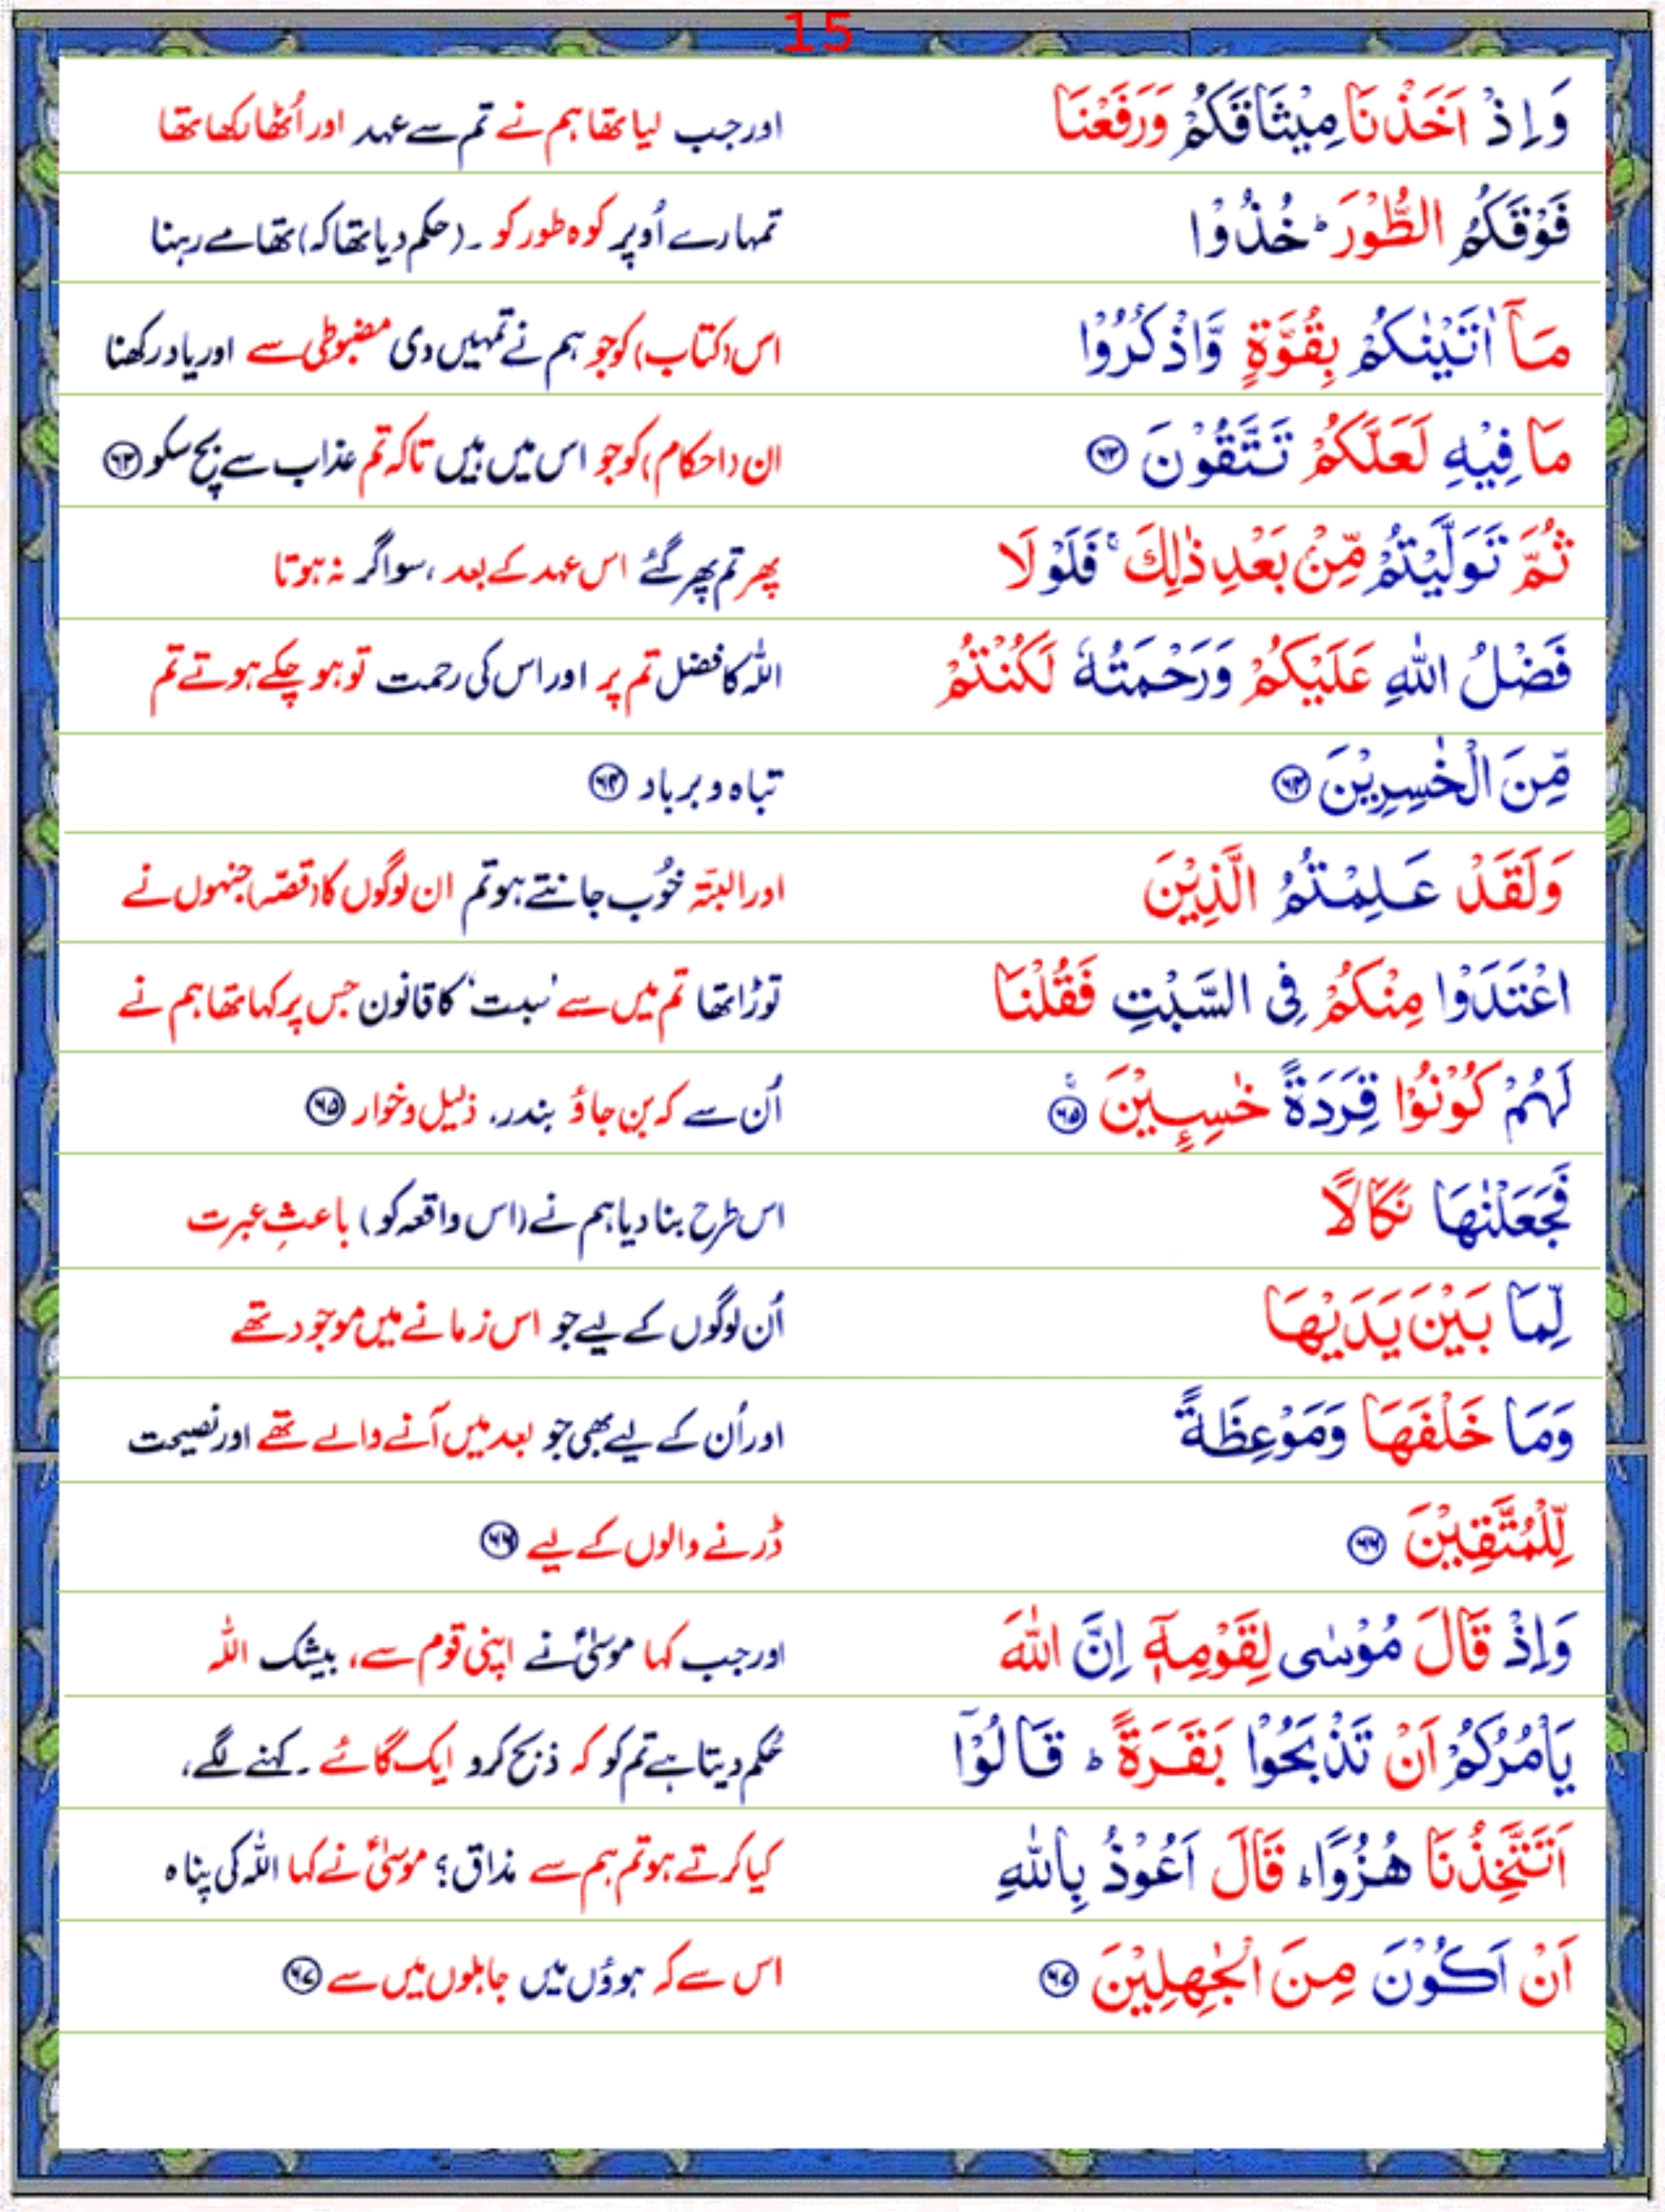 15
وَاِذْ اَخَذْنَا مِيْثَاقَكُمْ وَرَفَعْنَا
اور جب لیا تھا ہم نے تم سے عہد اور اُٹھا رکھا تھا
فَوْقَكُمُ الطُّوْرَ ؕ خُذُوْا
تمہارے اُوپر کوہ طور کو ۔ (حکم دیا تھا کہ) تھامے رہنا
مَاۤ اٰتَيْنٰكُمْ بِقُوَّةٍ وَّاذْكُرُوْا
اس (کتاب) کو جو ہم نے تمہیں دی مضبوطی سے اور یاد رکھنا
مَا فِيْهِ لَعَلَّكُمْ تَتَّقُوْنَ ۶۳
ان (احکام) کو جو اس میں ہیں تاکہ تم عذاب سے بچ سکو ۶۳
ثُمَّ تَوَلَّيْتُمْ مِّنْۢ بَعْدِ ذٰلِكَ ۚ فَلَوْلَا
پھر تم پھر گئے اس عہد کے بعد ، سو اگر نہ ہوتا
فَضْلُ اللّٰهِ عَلَيْكُمْ وَرَحْمَتُهٗ لَكُنْتُمْ
اللہ کا فضل تم پر اور اس کی رحمت تو ہو چکے ہوتے تم
مِّنَ الْخٰسِرِيْنَ ۶۴
تباہ و برباد ۶۴
وَلَقَدْ عَلِمْتُمُ الَّذِيْنَ
اور البتّہ خُوب جانتے ہو تم ان لوگوں کا (قصّہ) جنہوں نے
اعْتَدَوْا مِنْكُمْ فِى السَّبْتِ فَقُلْنَا
توڑا تھا تم میں سے 'سبت' کا قانون جس پر کہا تھا ہم نے
لَهُمْ كُوْنُوْا قِرَدَةً خٰسِـِٕيْنَ ۚ ۶۵
اُن سے کہ بن جاؤ بندر، ذلیل و خوار ۶۵
فَجَعَلْنٰهَا نَكَالًا
اس طرح بنا دیا ہم نے (اس واقعہ کو) باعثِ عبرت
لِّمَا بَيْنَ يَدَيْهَا
اُن لوگوں کے لیے جو اس زمانے میں موجود تھے
وَمَا خَلْفَهَا وَمَوْعِظَةً
اور اُن کے لیے بھی جو بعد میں آنے والے تھے اور نصیحت
لِّلْمُتَّقِيْنَ ۶۶
ڈرنے والوں کے لیے ۶۶
وَاِذْ قَالَ مُوْسٰى لِقَوْمِهٖۤ اِنَّ اللّٰهَ
اور جب کہا موسیٰؑ نے اپنی قوم سے، بیشک اللہ
يَاْمُرُكُمْ اَنْ تَذْبَحُوْا بَقَرَةً ؕ قَالُوْۤا
حُکم دیتا ہے تم کو کہ ذبح کرو ایک گائے ۔ کہنے لگے،
اَتَتَّخِذُنَا هُزُوًا ؕ قَالَ اَعُوْذُ بِاللّٰهِ
کیا کرتے ہو تم ہم سے مذاق؟ موسیٰؑ نے کہا اللہ کی پناہ
اَنْ اَكُوْنَ مِنَ الْجٰهِلِيْنَ ۶۷
اس سے کہ ہوؤں میں جاہلوں میں سے ۶۷